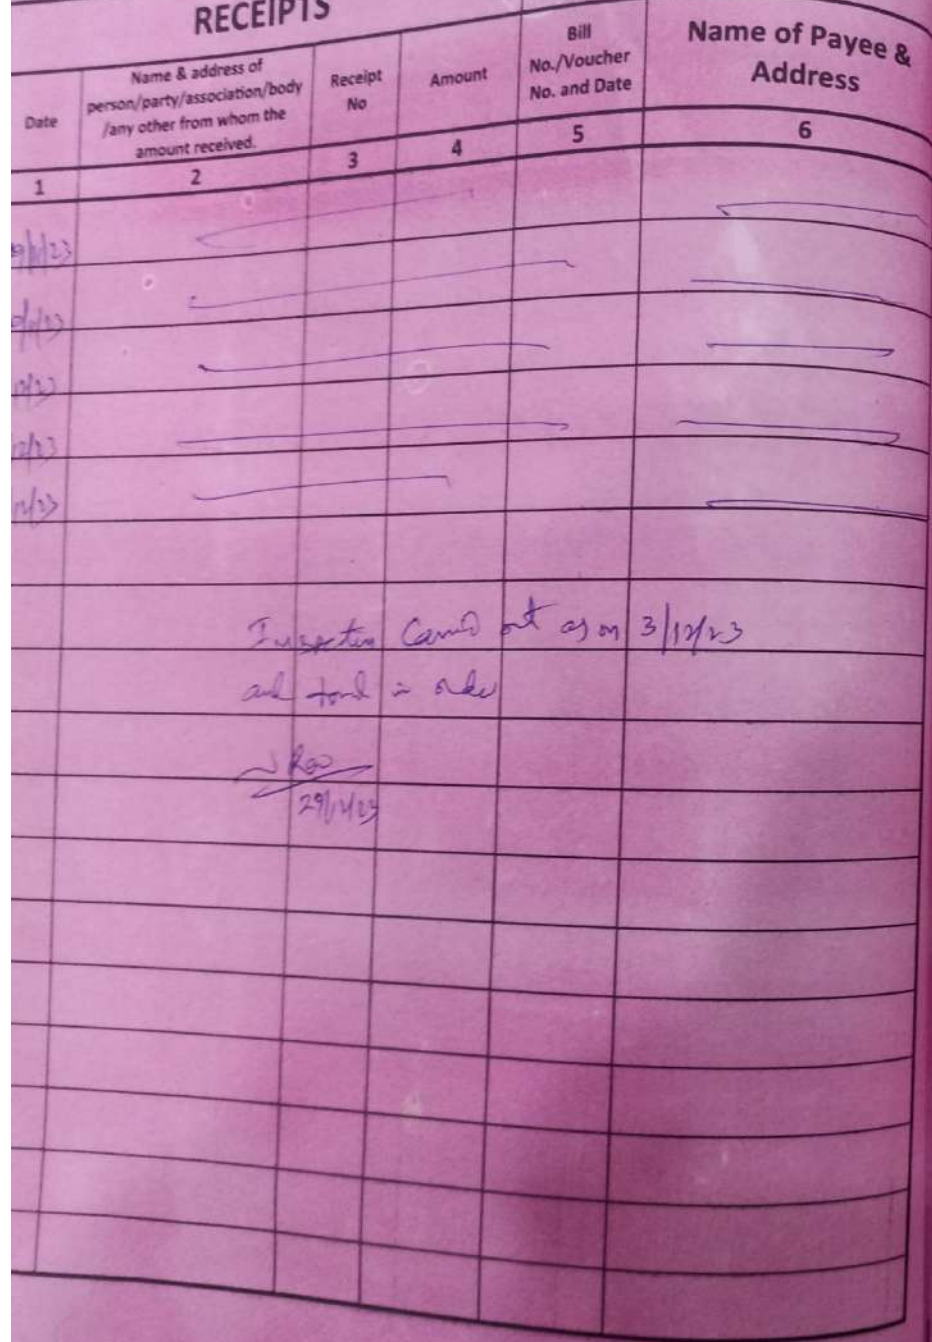 RECEIPTS
Date
Name & address of
person/party/association/body
/any other from whom the
amount received.
Receipt
No
Amount
Bill
No./Voucher
No. and Date
Name of Payee &
Address
1 2 3 4 5 6
9/11/23
/23
12/23
12/23
12/23
Inspection Carried out as on 3/12/23
and found in order
Rao
29/12/23